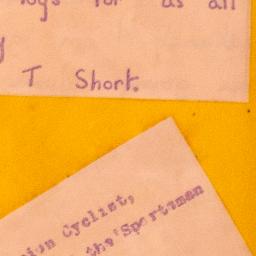 for us all
T Short.
Cyclist,
the 'Sportsman